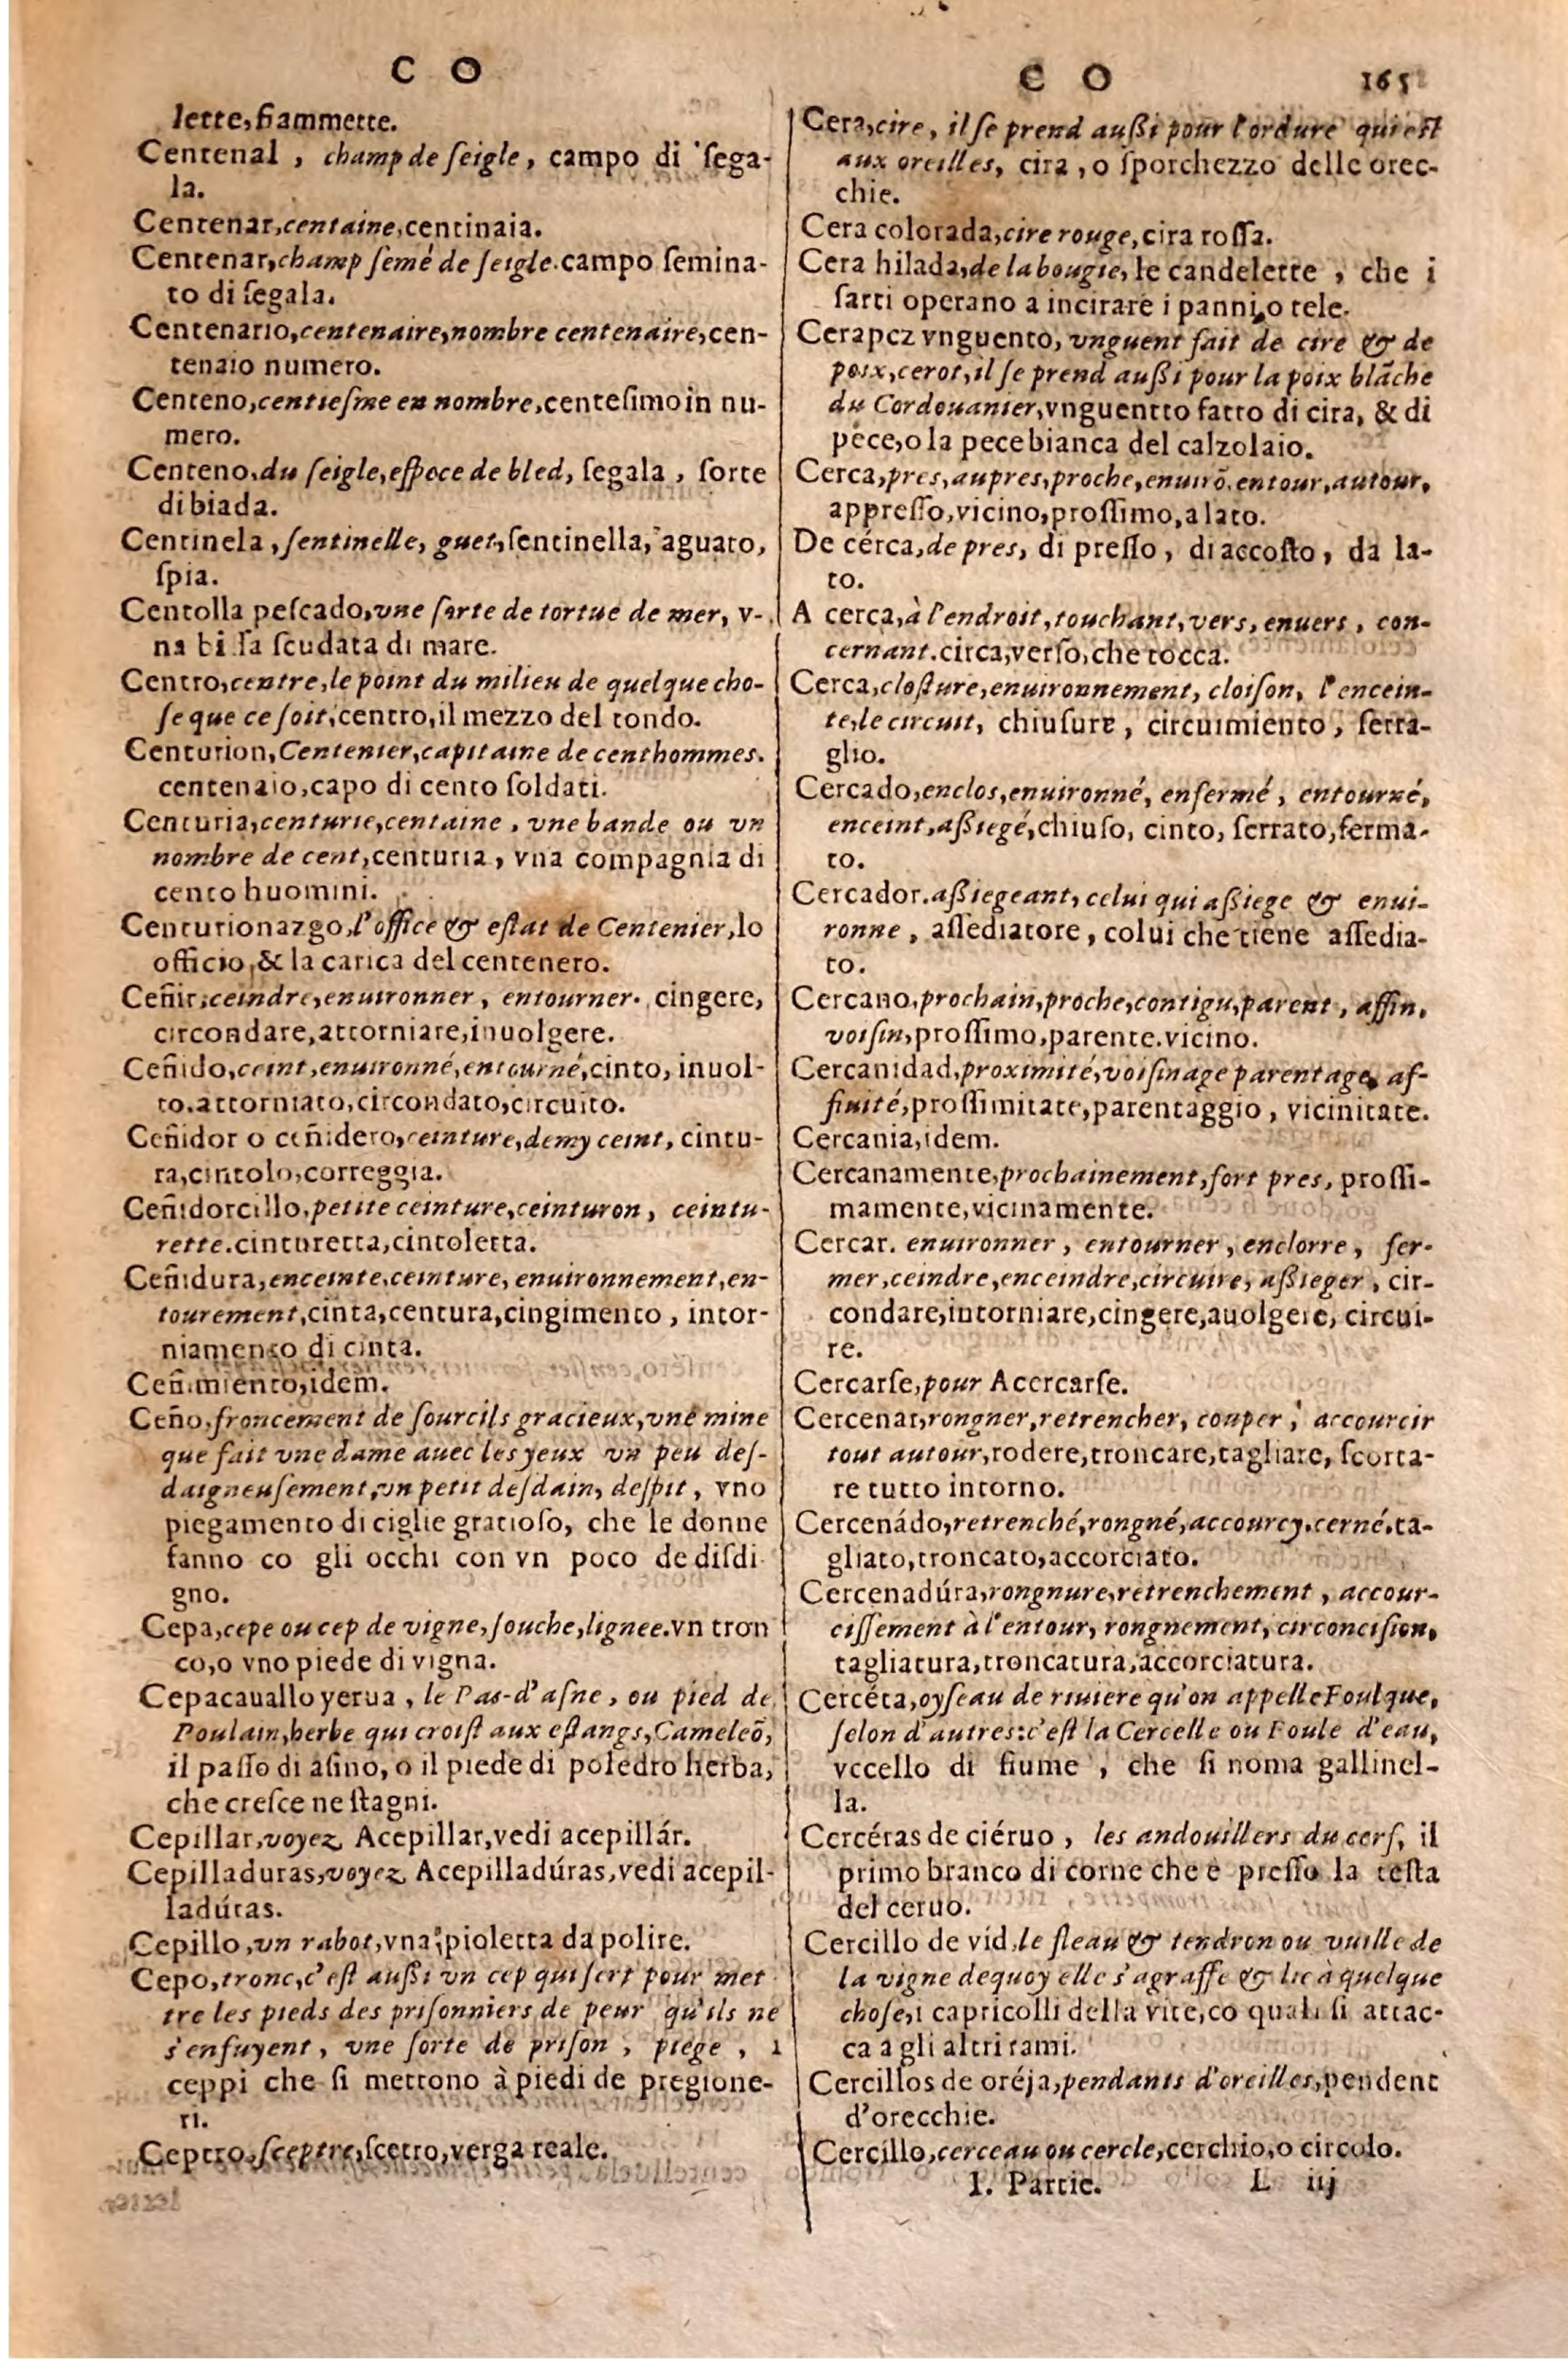 C O
lette, fiammette.
Centenal, champ de ſeigle, campo di ſega-
la.
Centenar, centaine, centinaia.
Centenar, champ ſemé de ſeigle. campo ſemina-
to di ſegala.
Centenario, centenaire, nombre centenaire, cen-
tenaio numero.
Centeno, centieſme en nombre, centeſimo in nu-
mero.
Centeno, du ſeigle, eſpece de bled, ſegala, ſorte
di biada.
Centinela, ſentinelle, guet, ſentinella, aguato,
ſpia.
Centolla peſcado, vne ſorte de tortue de mer, v-
na biſſa ſcudata di mare.
Centro, centre, le point du milieu de quelque cho-
ſe que ce ſoit, centro, il mezzo del tondo.
Centurion, Centenier, capitaine de cent hommes.
centenaio, capo di cento ſoldati.
Centuria, centurie, centaine, vne bande ou vn
nombre de cent, centuria, vna compagnia di
cento huomini.
Centurionazgo, l'office & eſtat de Centenier, lo
officio, & la carica del centenero.
Ceñir, ceindre, enuironner, entourner. cingere,
circondare, attorniare, inuolgere.
Ceñido, ceint, enuironné, entourné, cinto, inuol-
to. attorniato, circondato, circuito.
Ceñidor o ceñidero, ceinture, demy ceint, cintu-
ra, cintolo, correggia.
Ceñidorcillo, petite ceinture, ceinturon, ceintu-
rette. cinturetta, cintoletta.
Ceñidura, enceinte, ceinture, enuironnement, en-
tourement, cinta, centura, cingimento, intor-
niamento di cinta.
Ceñimiento, idem.
Ceño, froncement de ſourcils gracieux, vne mine
que fait vne dame auec les yeux vn peu deſ-
daigneuſement, vn petit deſdain, deſpit, vno
piegamento di ciglie gratioſo, che le donne
fanno co gli occhi con vn poco de diſdi
gno.
Cepa, cepe ou cep de vigne, ſouche, lignee. vn tron
co, o vno piede di vigna.
Cepacauallo yerua, le Pas-d'aſne, ou pied de
Poulain, herbe qui croiſt aux eſtangs, Cameleõ,
il paſſo di aſino, o il piede di poledro herba,
che creſce ne ſtagni.
Cepillar, voyez Acepillar, vedi acepillár.
Cepilladuras, voyez Acepilladúras, vedi acepil-
ladúras.
Cepillo, vn rabot, vna pioletta da polire.
Cepo, tronc, c'eſt auſſi vn cep qui ſert pour met
tre les pieds des priſonniers de peur qu'ils ne
s'enfuyent, vne ſorte de priſon, piege, i
ceppi che ſi mettono à piedi de pregione-
ri.
Ceptro, ſceptre, ſcetro, verga reale.
C O 165
Cera, cire, il ſe prend auſſi pour l'ordure qui eſt
aux oreilles, cira, o ſporchezzo delle orec-
chie.
Cera colorada, cire rouge, cira roſſa.
Cera hilada, de la bougie, le candelette, che i
ſarti operano a incirare i panni, o tele.
Cerapez vnguento, vnguent fait de cire & de
poix, cerot, il ſe prend auſſi pour la poix blãche
du Cordouanier, vnguentto fatto di cira, & di
pece, o la pece bianca del calzolaio.
Cerca, pres, aupres, proche, enuirõ, entour, autour,
appreſſo, vicino, proſſimo, a lato.
De cérca, de pres, di preſſo, di accoſto, da la-
to.
A cerca, à l'endroit, touchant, vers, enuers, con-
cernant. circa, verſo, che tocca.
Cerca, cloſture, enuironnement, cloiſon, l'encein-
te, le circuit, chiuſure, circuimiento, ſerra-
glio.
Cercado, enclos, enuironné, enfermé, entourné,
enceint, aſſiegé, chiuſo, cinto, ſerrato, ferma-
to.
Cercador. aſſiegeant, celui qui aſſiege & enui-
ronne, aſſediatore, colui che tiene aſſedia-
to.
Cercano, prochain, proche, contigu, parent, affin,
voiſin, proſſimo, parente. vicino.
Cercanidad, proximité, voiſinage parentage, af-
finité, proſſimitate, parentaggio, vicinitate.
Cercania, idem.
Cercanamente, prochainement, fort pres, proſſi-
mamente, vicinamente.
Cercar. enuironner, entourner, enclorre, fer-
mer, ceindre, enceindre, circuire, aſſieger, cir-
condare, intorniare, cingere, auolgere, circui-
re.
Cercarſe, pour Acercarſe.
Cercenar, rongner, retrencher, couper, accourcir
tout autour, rodere, troncare, tagliare, ſcorta-
re tutto intorno.
Cercenádo, retrenché, rongné, accourcy. cerné. ta-
gliato, troncato, accorciato.
Cercenadúra, rongnure, retrenchement, accour-
ciſſement à l'entour, rongnement, circonciſion,
tagliatura, troncatura, accorciatura.
Cercéta, oyſeau de riuiere qu'on appelle Foulque,
ſelon d'autres: c'eſt la Cercelle ou Foule d'eau,
vccello di fiume, che ſi noma gallinel-
la.
Cercéras de ciéruo, les andouillers du cerf, il
primo branco di corne che è preſſo la teſta
del ceruo.
Cercillo de vid, le fleau & tendron ou vuille de
la vigne dequoy elle s'agraffe & lie à quelque
choſe, i capricolli della vite, co quali ſi attac-
ca a gli altri rami.
Cercillos de oréja, pendants d'oreilles, pendent
d'orecchie.
Cercíllo, cerceau ou cercle, cerchio, o circolo.
I. Partie. L iij